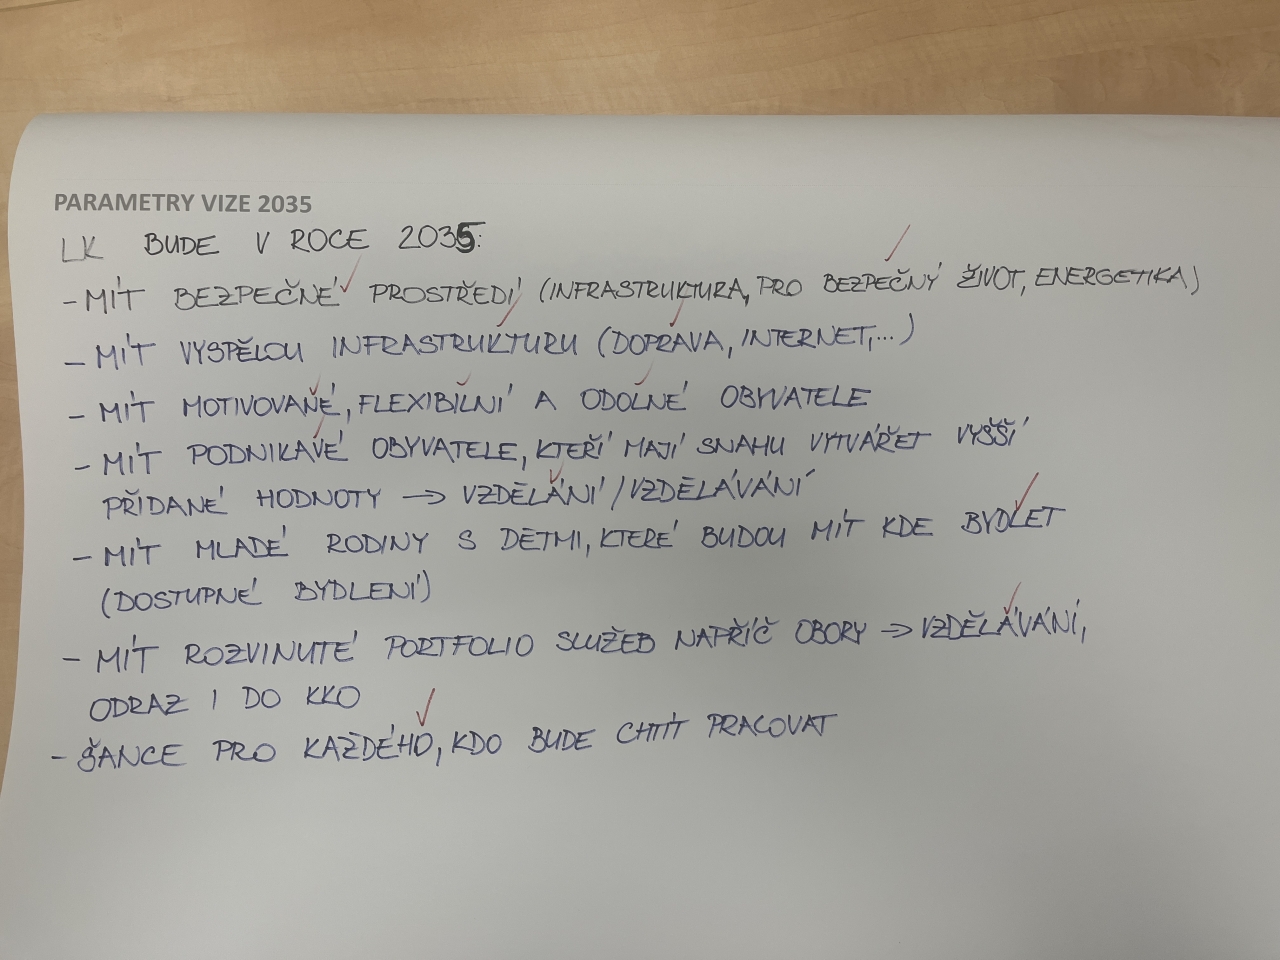 PARAMETRY VIZE 2035
LK BUDE V ROCE 2035:
- MÍT BEZPEČNÉ PROSTŘEDÍ (INFRASTRUKTURA, PRO BEZPEČNÝ ŽIVOT, ENERGETIKA)
- MÍT VYSPĚLOU INFRASTRUKTURU (DOPRAVA, INTERNET,...)
- MÍT MOTIVOVANÉ, FLEXIBILNÍ A ODOLNÉ OBYVATELE
- MÍT PODNIKAVÉ OBYVATELE, KTEŘÍ MAJÍ SNAHU VYTVÁŘET VYŠŠÍ
PŘIDANÉ HODNOTY → VZDĚLÁNÍ/VZDĚLÁVÁNÍ
- MÍT MLADÉ RODINY S DĚTMI, KTERÉ BUDOU MÍT KDE BYDLET
(DOSTUPNÉ BYDLENÍ)
- MÍT ROZVINUTÉ PORTFOLIO SLUŽEB NAPŘÍČ OBORY → VZDĚLÁVÁNÍ,
ODRAZ I DO KKO
- ŠANCE PRO KAŽDÉHO, KDO BUDE CHTÍT PRACOVAT